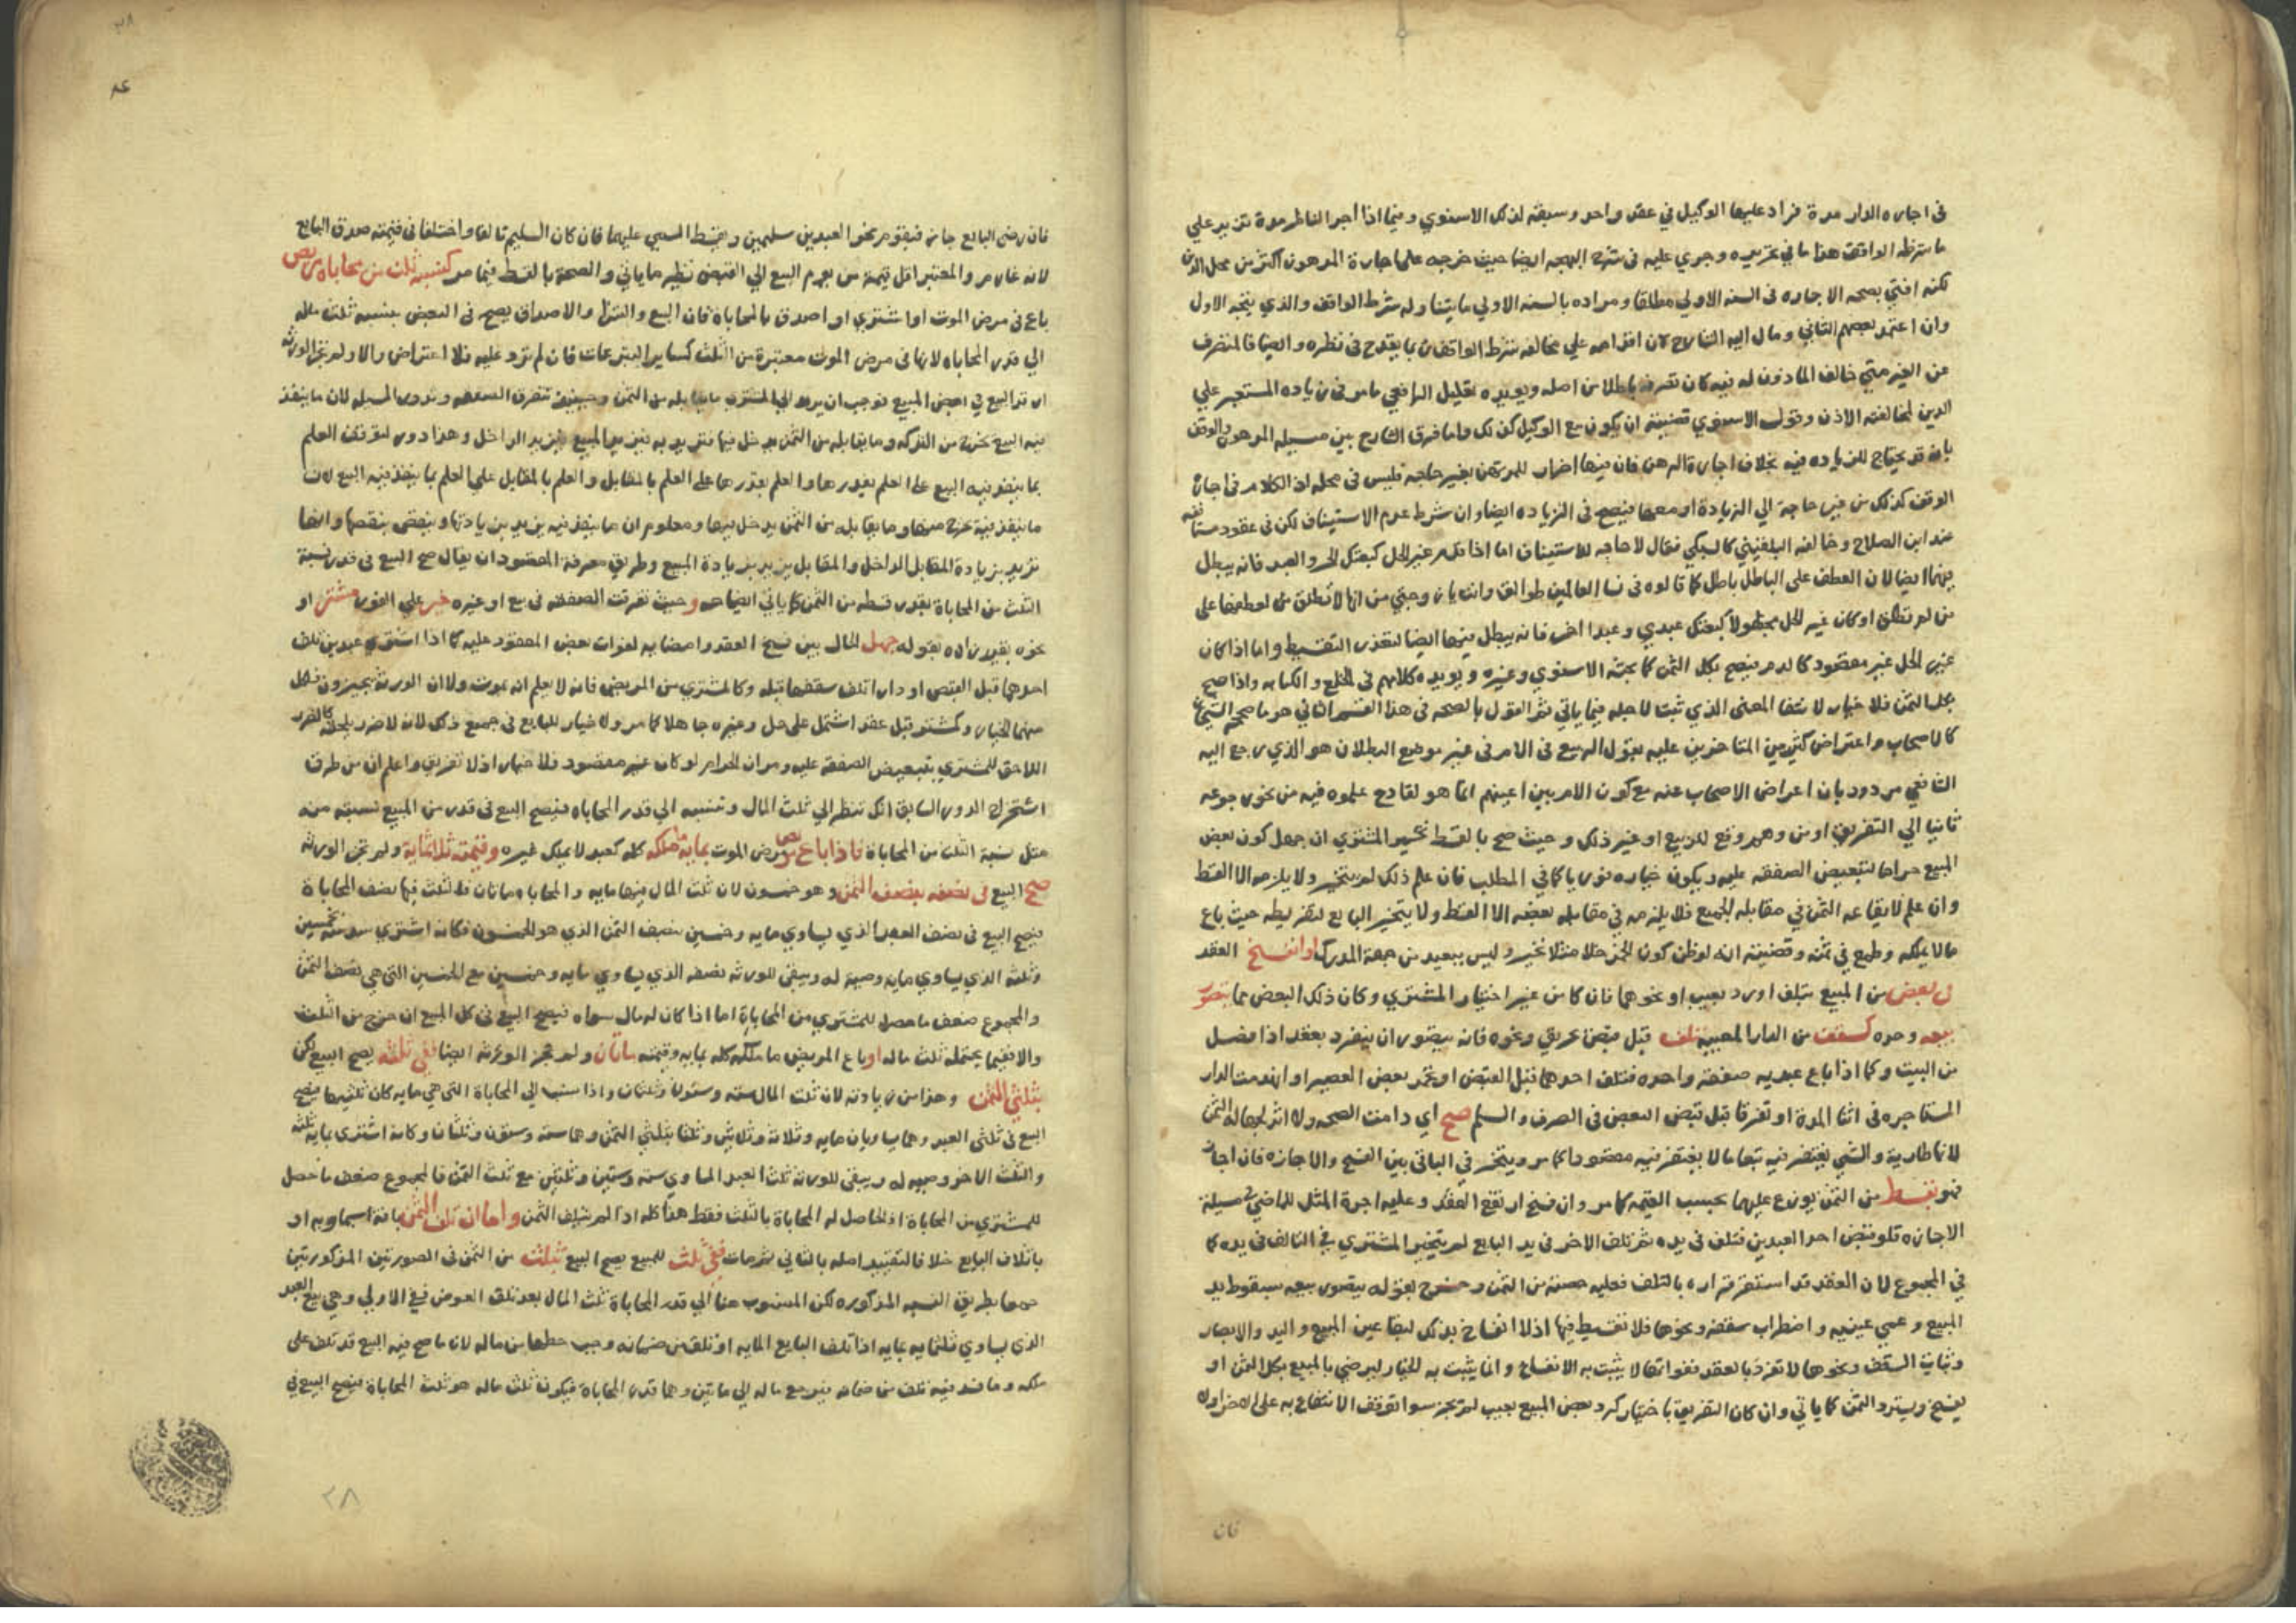 في اجاره الدار مدة فزاد عليها الوكيل في عقد واحد وسبقه لذلك الاسنوي وفيما اذا اجر الناظر مدة تزيد علي
ما شرطه الواقف هذا ما في تحريره وجري عليه في شرح البهجه ايضا حيث خرجه علي اجارة المرهون اكثر من محل الدين
لكنه افتي بصحه الاجاره في السنه الاولي مطلقا ومراده بالسنه الاولي ما يتناوله شرط الواقف والذي يتجه الاول
وان اعتمد بعضهم الثاني ومال اليه الشارح لان اقدامه علي مخالفه شرط الواقف يقدح في نظره وايضا فالمتصرف
عن الغير متي خالف الماذون له فيه كان تصرفه باطلا من اصله ويويده تعليل الرافعي ما مر في زياده المستعير علي
الدين لمخالفته الاذن وقول الاسنوي قضيته ان يكون بيع الوكيل كذلك واما فرق الشارح بين مسيله المرهون والوقف
بانه قد يحتاج للزياده فيه بخلاف اجارة الرهن فان فيها اضرار للمرتهن بغير حاجه فليس في محله اذ الكلام في اجارة
الوقف كذلك من غير حاجة الي الزيادة او معها فيصح في الزياده ايضا وان شرط عدم الاستيناف لكن في عقود مستانفه
عند ابن الصلاح وخالفه البلقيني كالسبكي فقال لا حاجه للاستيناف اما اذا قدم غير الحل كبعتك الحر والعبد فانه يبطل
فيهما ايضا لان العطف علي الباطل باطل كما قالوه في نسا العالمين طوالق وانت يا زوجتي من انها لا تطلق لعطفها علي
من لم تطلق او كان غير الحل مجهولا كبعتك عبدي وعبدا اخر فانه يبطل فيهما ايضا لتعذر التقسيط واما اذا كان
غير الحل غير مقصود كالدم فيصح بكل الثمن كما بحثه الاسنوي وغيره ويويده كلامهم في الخلع والكتابه واذا صح
بكل الثمن فلا خيار لانتفا المعني الذي ثبت لاجله فيما ياتي ثم القول بالصحه في هذا القسم الثاني هو ما صححه الشيخان
كالاصحاب واعتراض كثير من المتاخرين عليه بقول الربيع في الام في غير موضع البطلان هو الذي رجع اليه
الشافعي مردود بان اعراض الاصحاب عنه مع كون الام بين اعينهم انما هو لقادح علموه فيه من نحو رجوعه
ثانيا الي التفريق او من وهم وقع للربيع او غير ذلك وحيث صح بالقسط تخير المشتري ان جهل كون بعض
المبيع حراما لتبعيض الصفقه عليه ويكون خياره فوريا كما في المطلب فان علم ذلك لم يتخير ولا يلزمه الا القسط
وان علم لايقاعه الثمن في مقابله الجميع فلا يلزمه في مقابله بعضه الا القسط ولا يتخير البايع لتفريطه حيث باع
مالا يملكه وطمع في ثمنه وقضيته انه لو ظن كون الخمر خلا مثلا تخير وليس ببعيد من جهة المدرك او انفسخ العقد
في بعض من المبيع بتلف او رد بعيب او نحوهما فان كان من غير اختيار المشتري وكان ذلك البعض مما يتصور
بيعه وحده كسقف من الدار المعيبه تلف قبل قبض بحريق ونحوه فانه يتصور ان ينفرد بعقد اذا فصل
من البيت وكما اذا باع عبديه صفقه واحده فتلف احدهما قبل القبض او تخمر بعض العصير او انهدمت الدار
المستاجره في اثنا المدة او تفرقا قبل قبض البعض في الصرف والسلم صح اي دامت الصحه ولا اثر لجهاله الثمن
لانها طارية والشي يغتفر فيه تبعا مالا يغتفر فيه مقصودا كما مر ويتخير في الباقي بين الفسخ والاجازه فان اجاز
فهو بقسط من الثمن يوزع عليهما بحسب القيمه كما مر وان فسخ ارتفع العقد وعليه اجرة المثل للماضي في مسيلة
الاجاره فلو قبض احد العبدين فتلف في يده ثم تلف الاخر في يد البايع لم يتخير المشتري في التالف في يده كما
في المجموع لان العقد قد استقر قراره بالتلف فعليه حصته من الثمن وخرج بقوله يتصور بيعه سقوط يد
المبيع وعمي عينيه واضطراب سقفه ونحوها فلا تقسيط فيها اذ لا انفساخ بذلك لبقا عين المبيع واليد والابصار
وثبات السقف ونحوها لا تفرد بالعقد ففواتها لا يثبت به الانفساخ وانما يثبت به الخيار ليرضي بالمبيع بكل الثمن او
يفسخ ويسترد الثمن كما ياتي وان كان التفريق باختيار كرد بعض المبيع بعيب لم يجز سوا توقف الانتفاع به علي الاخر اولا
فان
فان رضي البايع جاز فيقوم نحو العبدين سليمين ويقسط المسمي عليهما فان كان السليم تالفا واختلفا في قيمته صدق البايع
لانه غارم والمعتبر اقل قيمة من يوم البيع الي القبض نظير ما ياتي والصحة بالقسط فيما مر كنسبه ثلث من محاباة مريض
باع في مرض الموت او اشتري او اصدق بالمحاباة فان البيع والشرا والاصداق يصح في البعض بنسبه ثلث ماله
الي قدر المحاباه لانها في مرض الموت معتبرة من الثلث كساير التبرعات فان لم تزد عليه فلا اعتراض والا ولم تجز الورثه
ارتد البيع في بعض المبيع فوجب ان يرد الي المشتري ما يقابله من الثمن وحينئذ تتفرق الصفقه وتدور المسيله لان ما ينفذ
فيه البيع يخرج من التركه وما يقابله من الثمن يدخل فيها فتزيد به فيزيد المبيع فيزيد الداخل وهذا دور لتوقف العلم
بما ينفذ فيه البيع علي العلم بقدرها والعلم بقدرها علي العلم بالمقابل والعلم بالمقابل علي العلم بما ينفذ فيه البيع لان
ما ينفذ فيه خرج منها وما يقابله من الثمن يدخل فيها ومعلوم ان ما ينفذ فيه يزيد بزيادتها وينقص بنقصها وانها
تزيد بزيادة المقابل الداخل والمقابل يزيد بزيادة المبيع وطريق معرفة المقصود ان يقال صح البيع في قدر نسبة
الثلث من المحاباة بقدر قسطه من الثمن كما ياتي ايضاحه وحيث تفرقت الصفقه في بيع او غيره خير علي الفور مشتر او
نحوه بقيد زاده بقوله جهل الحال بين فسخ العقد وامضايه لفوات بعض المعقود عليه كما اذا اشتري عبدين تلف
احدهما قبل القبض او دارا تلف سقفها قبله وكالمشتري من المريض فانه لا يعلم انه يموت ولا ان الورثه يجيزون فلكل
منهما الخيار وكمشتر قبل عقدا اشتمل علي حل وغيره جاهلا كما مر ولا خيار للبايع في جميع ذلك لانه لا ضرر يلحقه كالضرر
اللاحق للمشتري بتبعيض الصفقه عليه ومر ان الحرام لو كان غير مقصود فلا خيار اذ لا تفريق واعلم ان من طرق
استخراج الدور السابق انك تنظر الي ثلث المال وتنسبه الي قدر المحاباه فيصح البيع في قدر من المبيع نسبته منه
مثل نسبة الثلث من المحاباة فاذا باع مريض مرض الموت بمايه ملكه كله كعبد لا يملك غيره وقيمته ثلاثماية ولم تجز الورثه
صح البيع في نصفه بنصف الثمن وهو خمسون لان ثلث المال فيها مايه والمحاباه مايتان فالثلث فيها نصف المحاباة
فيصح البيع في نصف العبد الذي يساوي مايه وخمسين بنصف الثمن الذي هو الخمسون فكانه اشتري سدسه بخمسين
وثلثه الذي يساوي مايه وصية له ويبقي للورثه نصفه الذي يساوي مايه وخمسين مع الخمسين التي هي نصف الثمن
والمجموع ضعف ما حصل للمشتري من المحاباة اما اذا كان له مال سواه فيصح البيع في كل المبيع ان خرج من الثلث
والا ففيما يحتمله ثلث ماله او باع المريض ما ملكه كله بمايه وقيمته مايتان ولم تجز الورثه ايضا ففي ثلثيه يصح البيع لكن
بثلثي الثمن وهذا من زيادته لان ثلث المال سته وستون وثلثان واذا نسب الي المحاباة التي هي مايه كان ثلثيها فيصح
البيع في ثلثي العبد وهما يساويان مايه وثلاثة وثلاثين وثلثا بثلثي الثمن وهما سته وستون وثلثان وكانه اشتري بمايه ثلثه
والثلث الاخر وصيه له ويبقي للورثه ثلث العبد المساوي سته وستين وثلثين مع ثلث الثمن فالمجموع ضعف ما حصل
للمشتري من المحاباة اذ الحاصل له المحاباة بالثلث فقط هذا كله اذا لم يتلف الثمن واما ان تلف الثمن بافة سماويه او
باتلاف البايع خلافا لتقييد اصله بالثاني ثم مات ففي ثلث للمبيع يصح البيع بثلث من الثمن في الصورتين المذكورتين
معا بطريق النسبه المذكوره لكن المنسوب هنا الي قدر المحاباة ثلث المال بعد تلف العوض ففي الاولي وهي بيع العبد
الذي يساوي ثلثمايه بمايه اذا تلف البايع المايه او تلف من ضمانه وجب حطها من ماله لان ما صح فيه البيع قد تلف علي
ملكه وما فسد فيه تلف من ضمانه فيرجع ماله الي مايتين وهما قدر المحاباة فيكون ثلث ماله هو ثلث المحاباة فيصح البيع في
٢٨